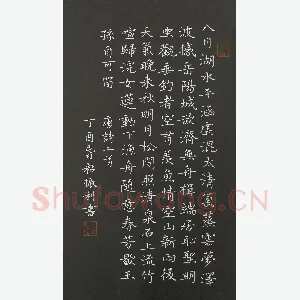 八月湖水平涵虛混太清氣蒸雲夢澤
波撼岳陽城欲濟無舟楫端居恥聖明
坐觀垂釣者空有羨魚情空山新雨後
天氣晚來秋明月松間照清泉石上流竹
喧歸浣女蓮動下漁舟隨意春芳歇王
孫自可留 唐詩二首
丁酉 振利書